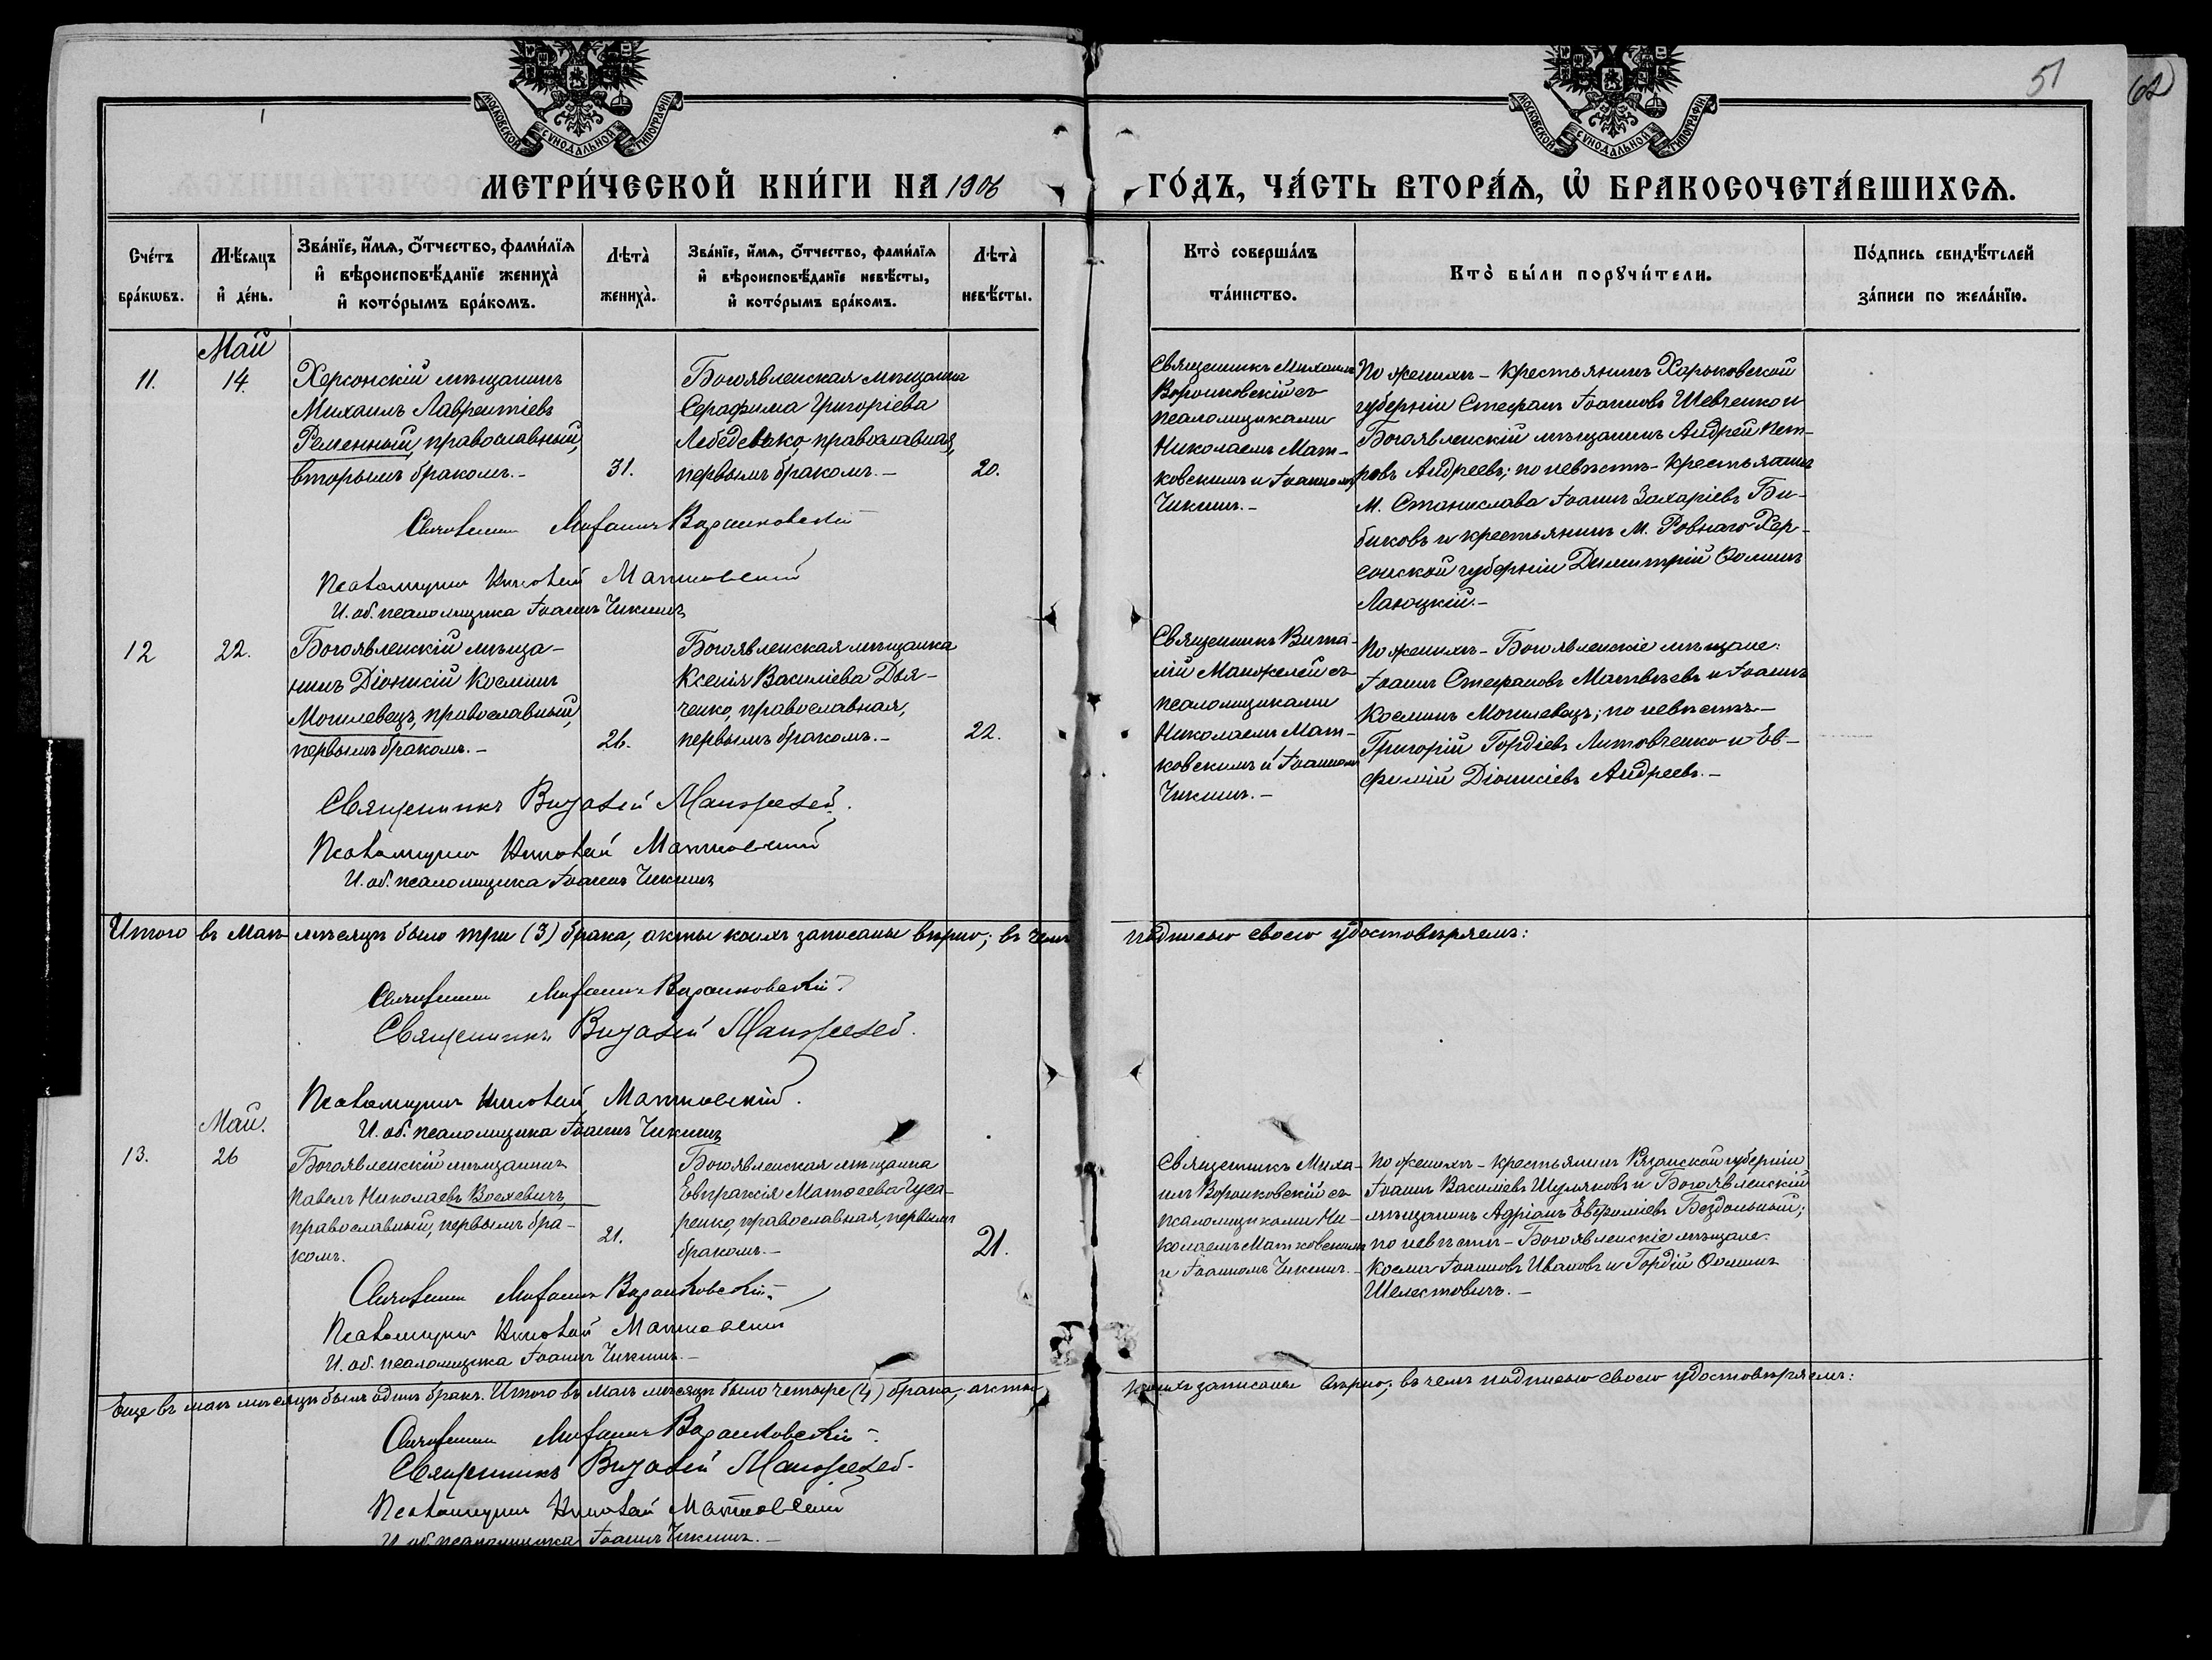 51
62
МОСКОВСКОЙ СѴНОДАЛЬНОЙ ТИПОГРАФІИ
МОСКОВСКОЙ СѴНОДАЛЬНОЙ ТИПОГРАФІИ
МЕТРИ́ЧЕСКОЙ КНИ́ГИ НА 1906
ГО́ДЪ, ЧА́СТЬ ВТОРА́Ѧ, Ѡ҆ БРАКОСОЧЕТА́ВШИХСѦ.
Сче́тъ
бра́кѡвъ.
Мѣ́сяцъ
и҆ де́нь.
Зва́нїе, и҆́мѧ, ѻ҆́тчество, фами́лїѧ
и҆ вѣроисповѣ́данїе жениха̀
и҆ кото́рымъ бра́комъ.
Лѣта̀
жениха̀.
Зва́нїе, и҆́мѧ, ѻ҆́тчество, фами́лїѧ
и҆ вѣроисповѣ́данїе невѣ́сты,
и҆ кото́рымъ бра́комъ.
Лѣта̀
невѣ́сты.
Кто̀ соверша́лъ
та́инство.
Кто̀ бы́ли порꙋчи́тели.
По́дпись свидѣ́телей
за́писи по жела́нїю.
Май
11.
14.
Херсонскій мѣщанинъ
Михаилъ Лаврентіевъ
Ременный, православный,
вторымъ бракомъ.-
31.
Богоявленская мѣщанка
Серафима Григоріева
Лебеденко, православная,
первымъ бракомъ.-
20.
Священникъ Михаилъ
Воронковскій съ
псаломщиками
Николаемъ Мат-
ковскимъ и Іоанномъ
Чикинъ.-
По женихѣ - крестьянинъ Харьковской
губерніи Стефанъ Іоанновъ Шевченко и
Богоявленскій мѣщанинъ Андрей Пет-
ровъ Андреевъ; по невѣстѣ - крестьянинъ
М. Станислава Іоаннъ Захаріевъ Би-
биковъ и крестьянинъ М. Ровнаго Хер-
сонской губерніи Димитрій Ѳоминъ
Лаюцкій.-
Священникъ Михаилъ Воронковскій
Псаломщикъ Николай Матковскій
И. об. псаломщика Іоаннъ Чикинъ
12
22.
Богоявленскій мѣща-
нинъ Діонисій Косминъ
Могилевецъ, православный,
первымъ бракомъ.-
26.
Богоявленская мѣщанка
Ксенія Василіева Дья-
ченко, православная,
первымъ бракомъ.-
22.
Священникъ Вита-
лій Манжелей съ
псаломщиками
Николаемъ Мат-
ковскимъ и Іоанномъ
Чикинъ.-
По женихѣ - Богоявленскіе мѣщане:
Іоаннъ Стефановъ Матвѣевъ и Іоаннъ
Косминъ Могилевецъ; по невѣстѣ -
Григорій Гордіевъ Литовченко и Ев-
фимій Діонисіевъ Андреевъ.-
Священникъ Виталій Манжелей.
Псаломщикъ Николай Матковскій
И. об. псаломщика Іоаннъ Чикинъ
Итого въ Маѣ мѣсяцѣ было три (3) брака, акты коихъ записаны вѣрно; въ чемъ подписью своею удостовѣряемъ:
Священникъ Михаилъ Воронковскій.
Священникъ Виталій Манжелей.
Псаломщикъ Николай Матковскій.
И. об. псаломщика Іоаннъ Чикинъ
Май.
13.
26
Богоявленскій мѣщанинъ
Павелъ Николаевъ Воехевичъ,
православный, первымъ бра-
комъ.
21.
Богоявленская мѣщанка
Евпраксія Матѳеева Гуса-
ренко, православная, первымъ
бракомъ.-
21.
Священникъ Миха-
илъ Воронковскій съ
псаломщиками Ни-
колаемъ Матковскимъ
и Іоанномъ Чикинъ.-
По женихѣ - крестьянинъ Рязанской губерніи
Іоаннъ Василіевъ Шуляковъ и Богоявленскій
мѣщанинъ Адріанъ Евфиміевъ Бездольный;
по невѣстѣ - Богоявленскіе мѣщане:
Косма Іоанновъ Ивановъ и Гордій Ѳоминъ
Шелестовичъ.-
Священникъ Михаилъ Воронковскій.
Псаломщикъ Николай Матковскій
И. об. псаломщика Іоаннъ Чикинъ.-
Еще въ маѣ мѣсяцѣ былъ одинъ бракъ. Итого въ маѣ мѣсяцѣ было четыре (4) брака, акты коихъ записаны вѣрно; въ чемъ подписью своею удостовѣряемъ:
Священникъ Михаилъ Воронковскій.
Священникъ Виталій Манжелей.
Псаломщикъ Николай Матковскій
И. об. псаломщика Іоаннъ Чикинъ.-